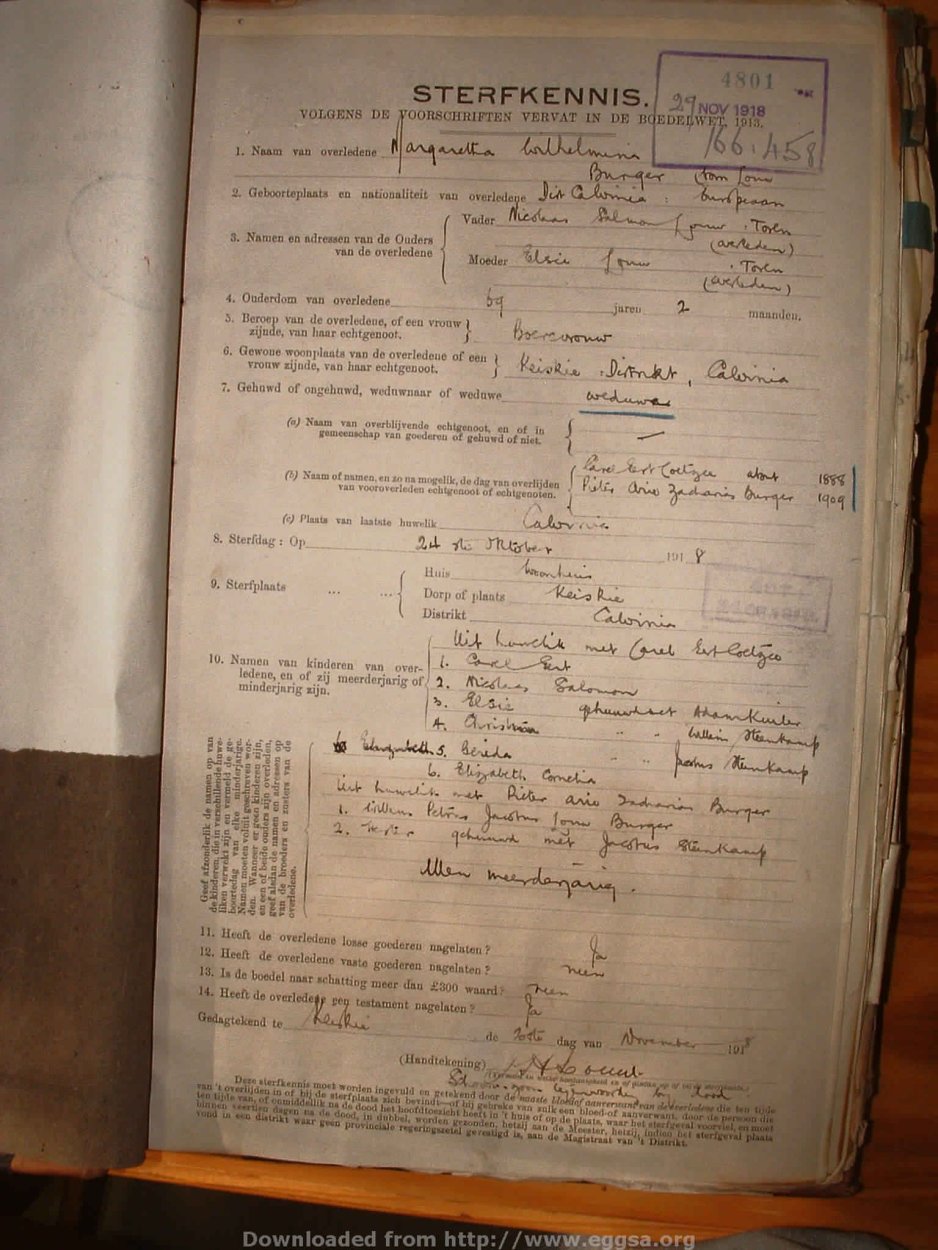 4801
STERFKENNIS.
29 NOV 1918
VOLGENS DE VOORSCHRIFTEN VERVAT IN DE BOEDELWET, 1913.
166.458
1. Naam van overledene Margaretha Wilhelmina
Burger born Louw
2. Geboorteplaats en nationaliteit van overledene Dist Calvinia : Europeaan
3. Namen en adressen van de Ouders van de overledene
Vader Nicolaas Salmon Louw : Toren
(overleden)
Moeder Elsie Louw : Toren
(overleden)
4. Ouderdom van overledene 69 jaren 2 maanden.
5. Beroep van de overledene, of een vrouw
zijnde, van haar echtgenoot. Boerevrouw
6. Gewone woonplaats van de overledene of een
vrouw zijnde, van haar echtgenoot. Keiskie : Distrikt, Calvinia
7. Gehuwd of ongehuwd, weduwnaar of weduwe weduwe
(a) Naam van overblijvende echtgenoot, en of in
gemeenschap van goederen of gehuwd of niet. —
(b) Naam of namen, en zo na mogelik, de dag van overlijden
van vooroverleden echtgenoot of echtgenoten.
Carel Gert Coetzee about 1888
Pieter Ario Zacharias Burger 1909
(c) Plaats van laatste huwelik Calvinia
8. Sterfdag : Op 24 ste Oktober 1918
9. Sterfplaats ... ...
Huis Woonhuis
Dorp of plaats Keiskie
Distrikt Calvinia
10. Namen van kinderen van over-
ledene, en of zij meerderjarig of
minderjarig zijn.
Uit huwelik met Carel Gert Coetzee
1. Carel Gert
2. Nicolaas Salomon
3. Elsie gehuwd met Adam
4. Christina " " Willem Steenkamp
5. Gereda " " Jacobus Steenkamp
6. Elizabeth Cornelia
Uit huwelik met Pieter Ario Zacharias Burger
1. Willem Petrus Jacobus Louw Burger
2. gehuwd met Jacobus Steenkamp
Allen meerderjarig.
Geef afzonderlik de namen op van
de kinderen, die in verschillende huwe-
liken verwekt zijn en vermeld de ge-
boortedag van elke minderjarige.
Namen moeten voluit geschreven wor-
den. Wanneer er geen kinderen zijn,
en een of beide ouders zijn overleden,
geef alsdan de namen en adressen op
van de broeders en zusters van de
overledene.
11. Heeft de overledene losse goederen nagelaten ? Ja
12. Heeft de overledene vaste goederen nagelaten ? neen
13. Is de boedel naar schatting meer dan £300 waard ? neen
14. Heeft de overledene een testament nagelaten ? Ja
Gedagtekend te Keiskie
de 20ste dag van November 1918
(Handtekening)
Deze sterfkennis moet worden ingevuld en getekend door de naaste bloed of aanverwant van de overledene die ten tijde
van 't overlijden in of bij de sterfplaats zich bevindt—of bij gebreke van zulk een bloed-of aanverwant, door de persoon die
ten tijde van, of onmiddellik na de dood het hoofdtoezicht heeft in 't huis of op de plaats, waar het sterfgeval voorviel, en moet
binnen veertien dagen na de dood, in dubbel, worden gezonden, hetzij aan de Meester, hetzij, indien het sterfgeval plaats
vond in een distrikt waar geen provinciale regeringszetel gevestigd is, aan de Magistraat van 't Distrikt.
Downloaded from http://www.eggsa.org